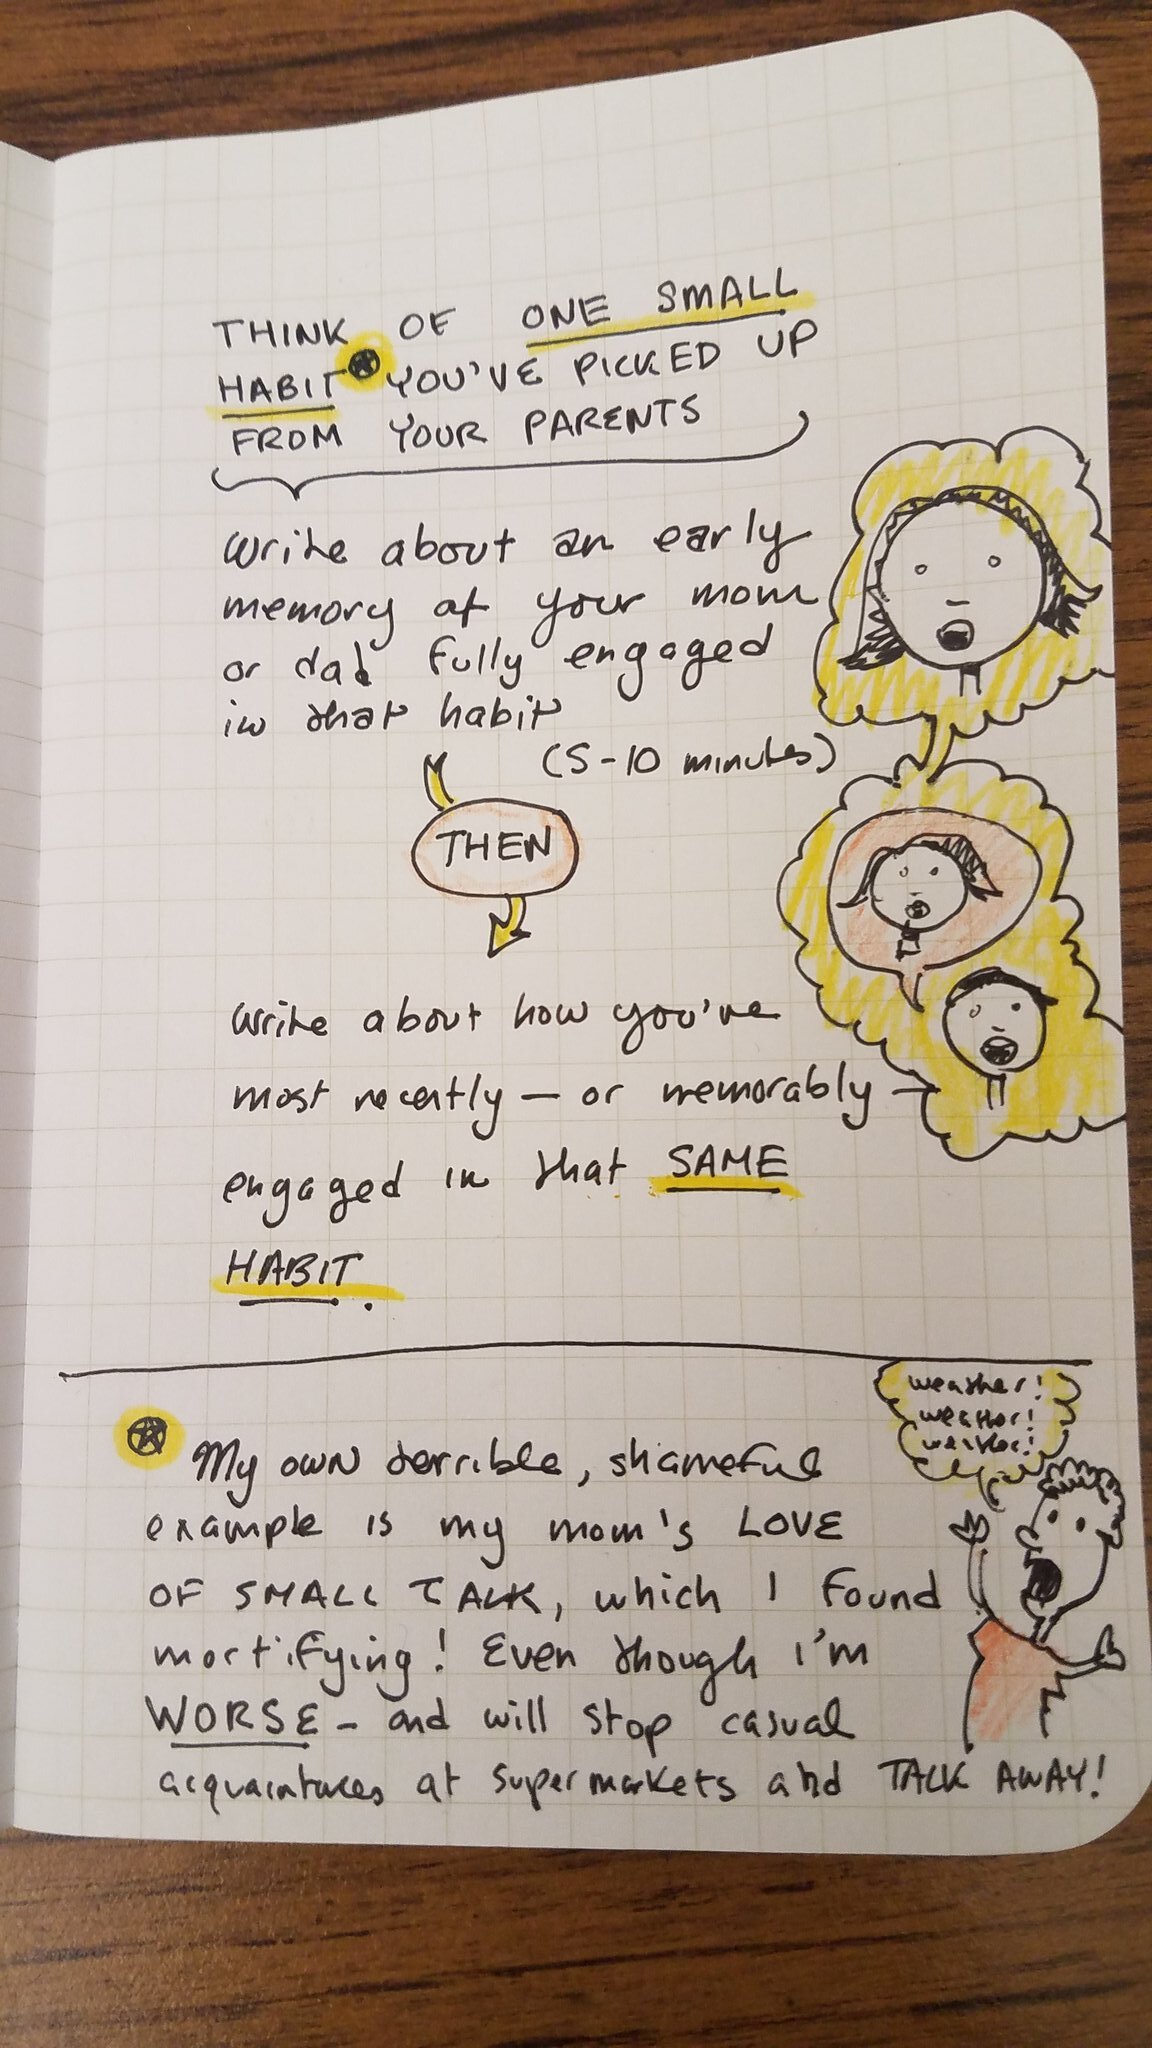 THINK OF ONE SMALL
HABIT YOU'VE PICKED UP
FROM YOUR PARENTS
Write about an early
memory of your mom
or dad fully engaged
in that habit
(5-10 minutes)
THEN
Write about how you've
most recently — or memorably —
engaged in that SAME
HABIT.
weather!
weather!
weather!
My own terrible, shameful
example is my mom's LOVE
OF SMALL TALK, which I found
mortifying! Even though I'm
WORSE - and will stop casual
acquaintances at supermarkets and TALK AWAY!